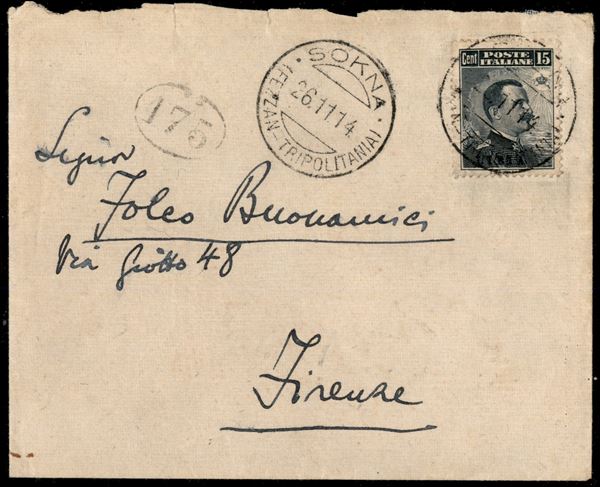 · SOKNA ·
26.11 14
(FEZZAN-TRIPOLITANIA)
Cent POSTE ITALIANE 15
175
Signor
Folco Buonamici
Via Giotto 48
Firenze